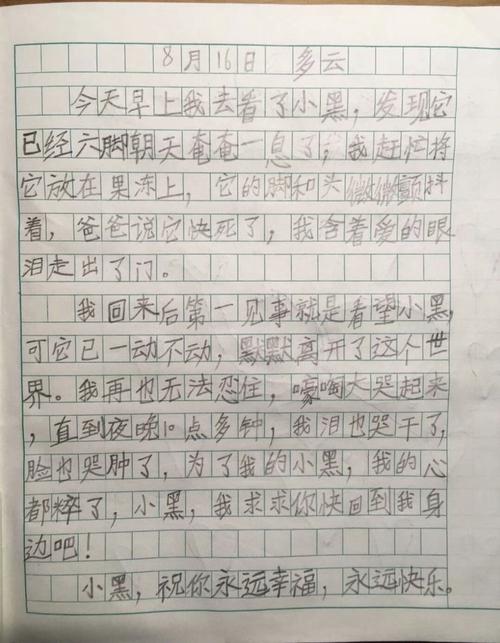 8月16日 多云
今天早上我去看了小黑，发现它
已经六脚朝天奄奄一息了，我赶忙将
它放在果冻上，它的脚和头微微颤抖
着，爸爸说它快死了，我含着爱的眼
泪走出了门。
我回来后第一见事就是看望小黑，
可它已一动不动，默默离开了这个世
界。我再也无法忍住，嚎啕大哭起来
，直到夜晚10点多钟，我泪也哭干了，
脸也哭肿了，为了我的小黑，我的心
都粹了，小黑，我求求你快回到我身
边吧！
小黑，祝你永远幸福，永远快乐。